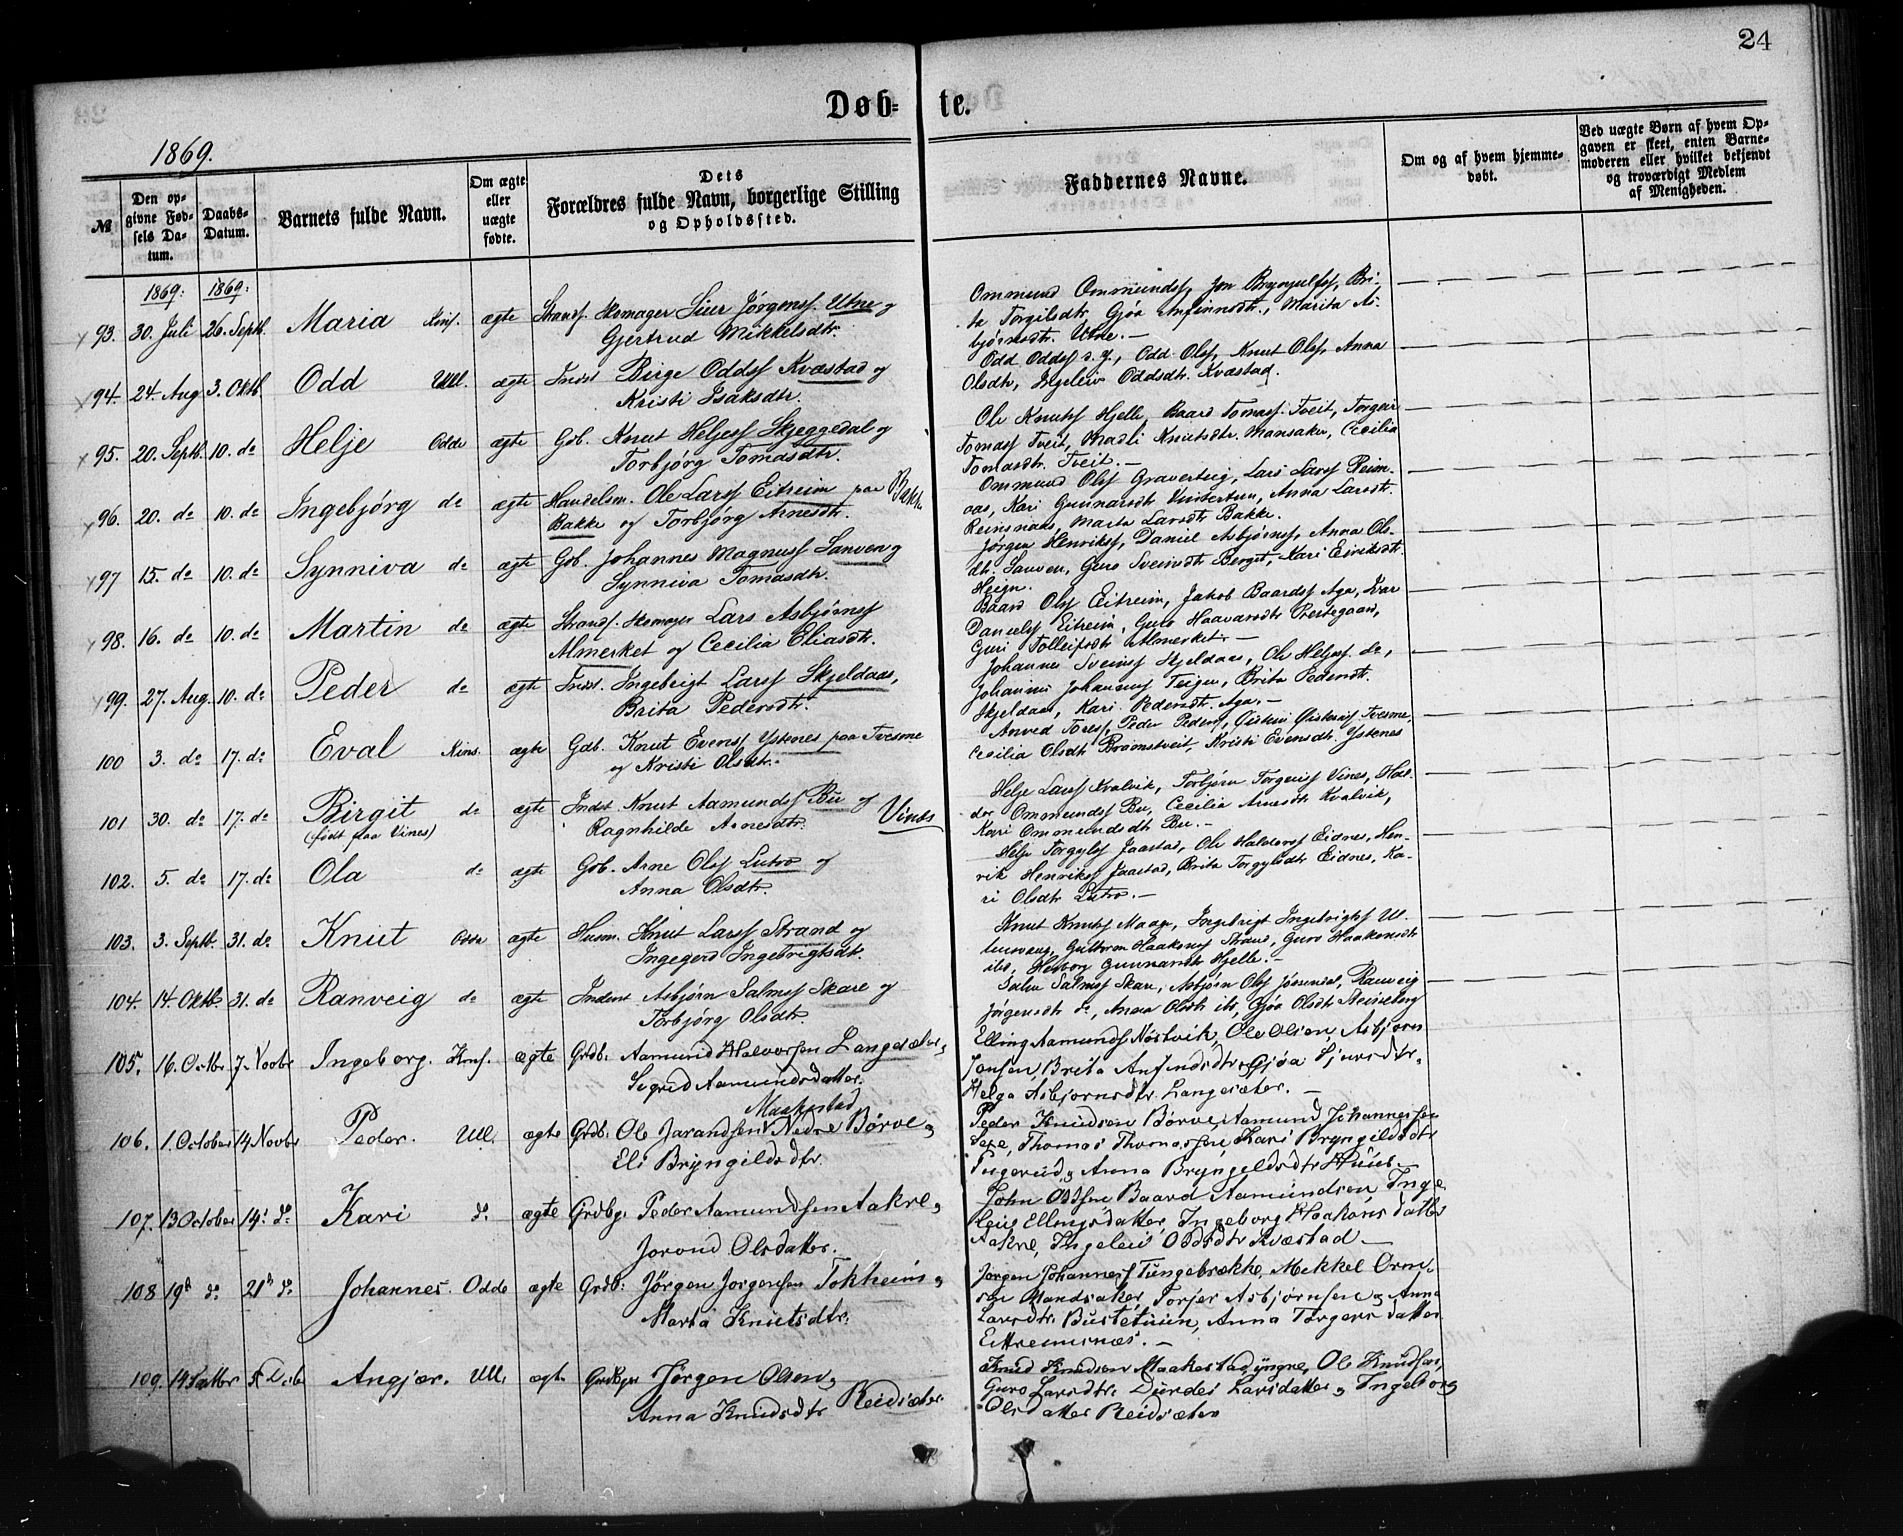 24
Døb- te.
1869.
№
Den opgivne Fødsels Datum.
Daabs-Datum.
Barnets fulde Navn.
Om ægte eller uægte fødte.
Dets Forældres fulde Navn, borgerlige Stilling og Opholdssted.
Faddernes Navne.
Om og af hvem hjemmedøbt.
Ved uægte Børn af hvem Opgaven er skeet, enten Barnemoderen eller hvilket bekjendt og troværdigt Medlem af Menigheden.
1869. 1869.
93. 30. Juli 26. Septb. Maria Kinf. ægte Strands. Skomager Siur Jørgens. Utne og
Gjertrud Mikkelsdtr.
Ommund Ommunds., Jon Brynjulfs., Bri-
ta Torgilsdtr. Gjøa Anfinnsdt., Marita As-
bjørnsdt. Utne. —
94. 24. Aug 3. Oktb. Odd Ull. ægte Indst Birge Odds. Kvæstad og
Kristi Isaksdtr.
Odd Odds. d. y., Odd Ols., Knut Ols., Anna
Olsdtr, Ingeleiv Oddsdt. Kvæstad.
95. 20. Septb. 10. do Helje Odde ægte Gb. Knut Heljes. Skjeggedal og
Torbjørg Tomasdtr.
Ole Knuts. Hjelle, Baard Tomass. Tveit, Torgeir
Tomass. Tveit, Madli Knutsdtr. Mansaker, Cecilia
Tomasdtr. Tveit —
96. 20. do 10. do Ingebjørg do ægte Handelsm. Ole Lars. Eitreim paa Bakke
Bakke og Torbjørg Arnesdt.
Ommund Ols. Graverteig, Lars Lars. Reins-
aas, Kari Gunnarsdt Vintertun, Anna Larsdt.
Reinsnaas, Marta Larsdt Bakke.
97 15. do 10. do Synniva do ægte Gb. Johannes Magnus. Sanven og
Synniva Tomasdt.
Jørgen Henriks., Daniel Asbjørns., Anna Ols-
dt. Sanven, Guro Sveinsdt Berget, Kari Eiriksdt.
98. 16. do 10. do Martin do ægte Strands. Skomager Lars Asbjørns.
Almerket og Cecilia Eliasdt.
Baard Ols. Eitreim, Jakob Baards. Aga, Ivar
Daniels. Eitreim, Guro Haavarsdt Prestegaard,
Guri Tolleifsdt Almerket. —
99. 27. Aug. 10. do Peder do ægte Indst. Ingebrigt Lars. Skjeldaas,
Brita Pedersdt.
Johannes Sveins. Skjeldaas, Ole Heljes. do,
Johannes Johannes. Teigen, Brita Pedersdt.
Skjeldaas, Kari Pedersdt. Aga. —
100 3. do 17. do Eval Kins. ægte Gdb. Knut Evens. Ystenes paa Tvesme
og Kristi Olsdt.
Anved Tores., Peder Peders., Øistein Øisteins. Tvesme,
Cecilia Olsdt Bramstveit, Kristi Evensdt. Ystenes
101 30. do 17. do Birgit do ægte Indst. Knut Aamunds. Bu og Vines
(født paa Vines) Ragnhilde Arnesdt.
Helje Lars. Kvalvik, Torbjørn Torgeirs. Vines, Hal-
dor Ommunds. Bu, Cecilia Arnesdt Kvalvik,
Kari Ommundsdt Bu. —
102. 5. do 17. do Ola do ægte Gb. Arne Ols. Lutro og
Anna Olsdt.
Helje Torgyls. Jaastad, Ole Haldors. Eidnes, Hen-
rik Henriks. Jaastad, Brita Torgylsdt Eidnes, Ka-
ri Olsdt Lutro. —
103. 3. Septb. 31. do Knut Odda ægte Husm. Knut Lars. Strand og
Ingegerd Ingebrigtsdt.
Knut Knuts. Maage, Ingebrigt Ingebrigts. Ul-
Guttorm Haakons. Strand, Guro Haakonsdt
ibs, Herborg Gunnarsdt Hjelle. —
104. 14. Oktb. 31. do Ranveig do ægte Inderst Asbjørn Salms. Skare og
Torbjørg Olsdt.
Salm Salms. Skare, Asbjørn Ols. Jøsendal, Ranveig
Jørgensdt do, Anna Olsdt ibs, Gjøa Olsdt Steinsberg
105. 16. Octbr. 7. Novbr Ingeborg. Knf. ægte Grdb. Aamund Halvorsen Langesæter,
Sigrid Aamundsdatter.
Elling Aamunds. Nøstvik, Ole Olsen, Asbjørn
Jonsen, Brita Anfindsdtr. Gjøa Sjursdtr.
Helga Asbjørnsdtr. Langesæter. —
106. 1. October 14 Novbr Peder. Ull. ægte Grdb. Ole Jarandsen Maakestad Nedre Børve,
Eli Bryngildsdtr.
Peder Knudsen Børve, Aamund Johannessen
Sexe, Thomas Thomassen, Kari Bryngildsdtr
Tingerud, Anna Bryngeldsdtr Huus. —
107. 13 October 14. do Kari do. ægte Grdbgr. Peder Aamundsen Aakre,
Jorond Olsdatter.
John Oddsen Baard Aamundsen Inge-
leiv Ellingsdatter, Ingeborg Haakonsdatter
Aakre, Ingeleiv Oddsdtr Kvæstad —
108 19de do. 21n do Johannes. Odde ægte Grdb. Jørgen Jørgensen Tokheim,
Marta Knutsdtr.
Jørgen Johannes. Tungebrække, Mekkel Orm-
sen Mandsaker, Torfer Asbjørnsen, Anna
Larsdtr Bustetuun, Anna Torgersdatter
Eitremsnæs. —
109. 14 Octbr 5 Dcb Angjær. Ull. ægte Grdbgr Jørgen Olsen,
Anna Knudsdtr Reidsæter
Knud Knudsen Maakestad yngre, Ole Knudsen,
Guro Larsdtr. Durdei Larsdatter, Ingeborg
Olsdatter Reidsæter